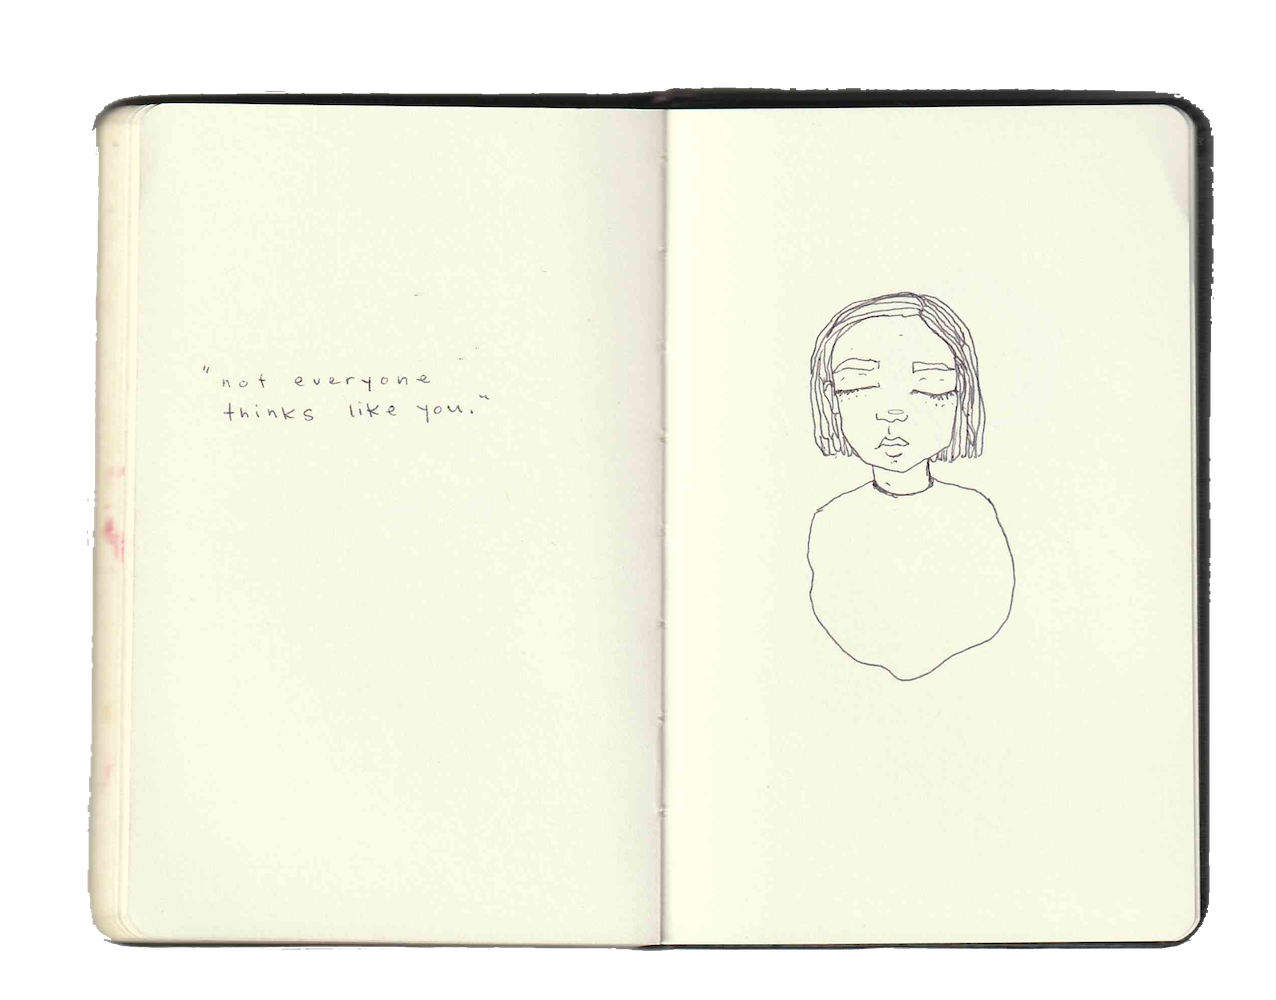 "not everyone
thinks like you."